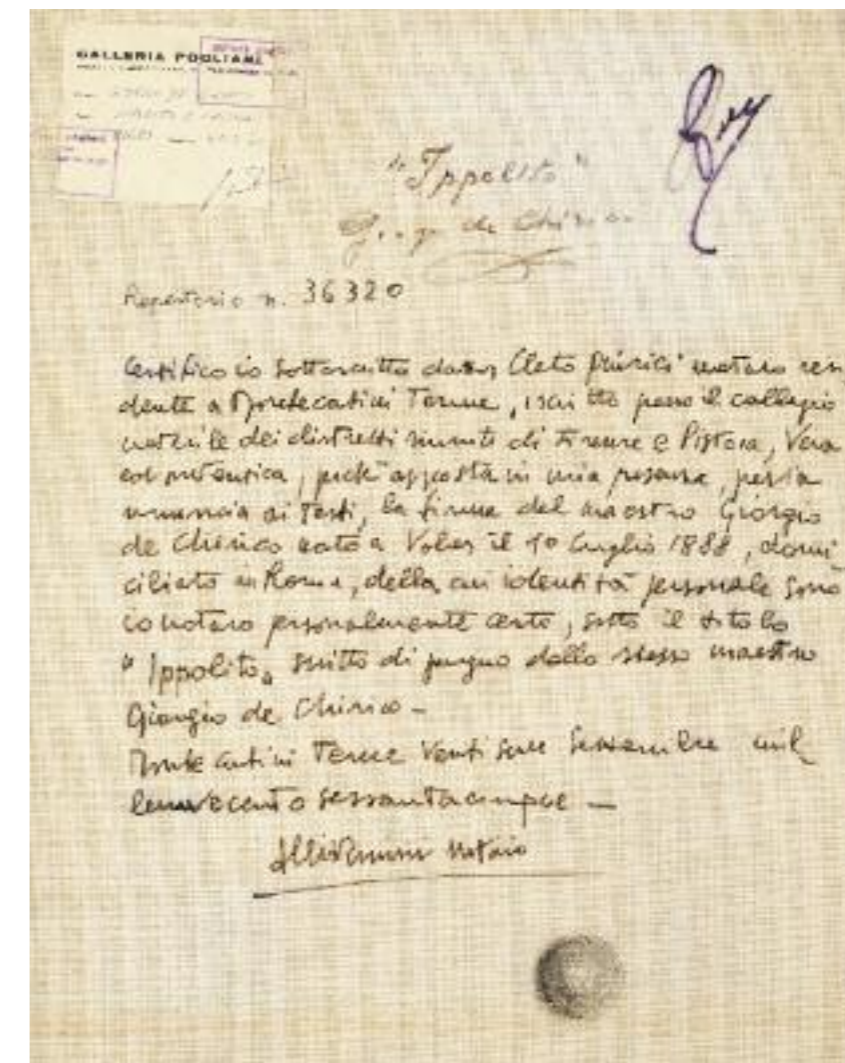 GALLERIA POGLIANI
"Ippolito"
Giorgio de Chirico
Repertorio n. 36320
Certifico io sottoscritto dottor Cleto notaro resi
dente a Montecatini Terme, iscritto presso il collegio
notarile dei distretti riuniti di Firenze e Pistoia, vera
ed autentica, perché apposta in mia presenza, previa
rinuncia ai testi, la firma del maestro Giorgio
de Chirico nato a Volos il 10 luglio 1888, domi
ciliato in Roma, della cui identità personale sono
io notaro personalmente certo, sotto il titolo
"Ippolito" scritto di pugno dallo stesso maestro
Giorgio de Chirico -
Montecatini Terme settembre mil
lenovecento sessantacinque -
notaio